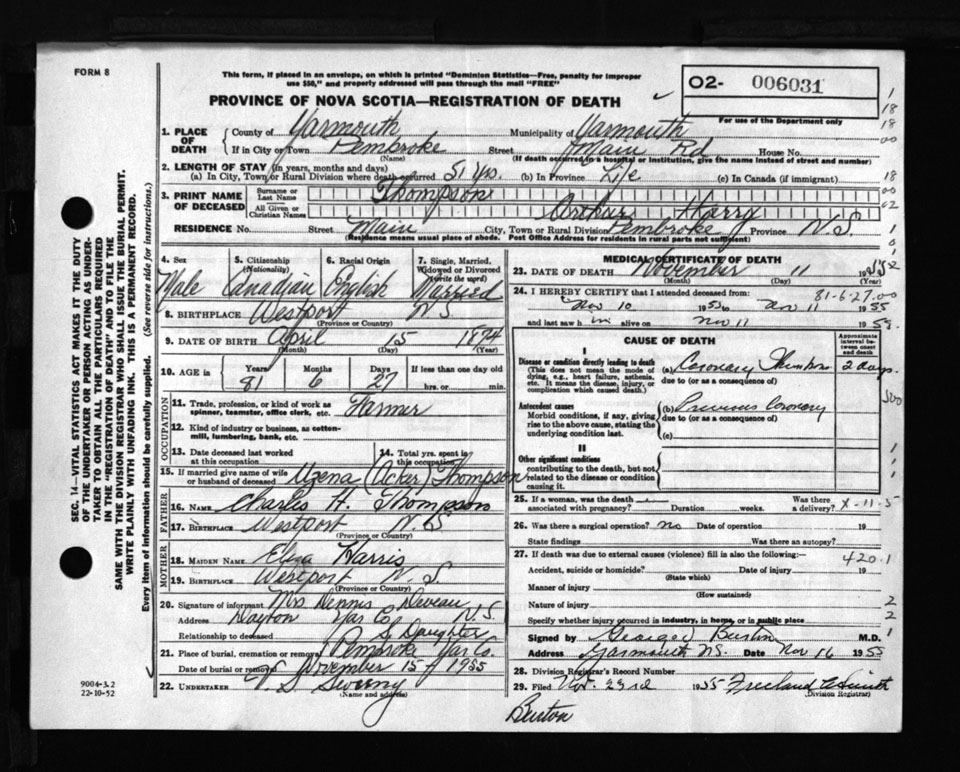 FORM 8
This form, if placed in an envelope, on which is printed "Dominion Statistics—Free, penalty for improper
use $50," and properly addressed will pass through the mail "FREE"
O2- 006031
PROVINCE OF NOVA SCOTIA—REGISTRATION OF DEATH
For use of the Department only
1. PLACE OF DEATH
County of Yarmouth Municipality of Yarmouth
If in City or Town Pembroke Street Main Rd House No.
(Name) (If death occurred in a hospital or institution, give the name instead of street and number)
2. LENGTH OF STAY (in years, months and days)
(a) In City, Town or Rural Division where death occurred 51 yrs. (b) In Province Life (c) In Canada (if immigrant)
3. PRINT NAME OF DECEASED
Surname or Last Name Thompson
All Given or Christian Names Arthur Harry
RESIDENCE No. Street Main City, Town or Rural Division Pembroke Province N.S.
(Residence means usual place of abode. Post Office Address for residents in rural parts not sufficient)
4. Sex Male
5. Citizenship (Nationality) Canadian
6. Racial Origin English
7. Single, Married, Widowed or Divorced (write the word) Married
8. BIRTHPLACE Westport N.S.
(Province or Country)
9. DATE OF BIRTH April 15 1874
(Month) (Day) (Year)
10. AGE in Years 81 Months 6 Days 27 If less than one day
hrs. or min.
OCCUPATION
11. Trade, profession, or kind of work as spinner, teamster, office clerk, etc. Farmer
12. Kind of industry or business, as cotton-mill, lumbering, bank, etc.
13. Date deceased last worked at this occupation
14. Total yrs. spent in this occupation
15. If married give name of wife or husband of deceased Uzena (Acker) Thompson
FATHER
16. NAME Charles H. Thompson
17. BIRTHPLACE Westport N.S
(Province or Country)
MOTHER
18. MAIDEN NAME Eliza Harris
19. BIRTHPLACE Westport N.S.
(Province or Country)
20. Signature of informant Mrs Dennis Deveau
Address Dayton Yar Co. N.S.
Relationship to deceased Daughter
21. Place of burial, cremation or removal Pembroke Yar Co.
Date of burial or removal November 15 1955
22. UNDERTAKER Sweeny
(Name and address)
MEDICAL CERTIFICATE OF DEATH
23. DATE OF DEATH November 11 1955
(Month) (Day) (Year)
81-6-27.00
24. I HEREBY CERTIFY that I attended deceased from:
Nov 10 1955 to Nov 11 1955
and last saw him alive on Nov 11 1955
CAUSE OF DEATH
Approximate interval between onset and death
I
Disease or condition directly leading to death
(This does not mean the mode of dying, e.g., heart failure, asthenia, etc. It means the disease, injury, or complication which caused death.)
(a) Coronary 2 days
due to (or as a consequence of)
Antecedent causes
Morbid conditions, if any, giving rise to the above cause, stating the underlying condition last.
(b) Previous Coronary
due to (or as a consequence of)
(c)
II
Other significant conditions
contributing to the death, but not related to the disease or condition causing it.
25. If a woman, was the death associated with pregnancy? Duration weeks. Was there a delivery? X-11-5
26. Was there a surgical operation? no Date of operation 19
State findings Was there an autopsy?
27. If death was due to external causes (violence) fill in also the following:—
420.1
Accident, suicide or homicide? Date of injury 19
(State which)
Manner of injury
(How sustained)
Nature of injury
Specify whether injury occurred in industry, in home, or in public place
Signed by George Burton M.D.
Address Yarmouth NS. Date Nov 16 1955
28. Division Registrar's Record Number
29. Filed Nov. 23rd 1955 Freeland
(Division Registrar)
Burton
SEC. 14—VITAL STATISTICS ACT MAKES IT THE DUTY
OF THE UNDERTAKER OR PERSON ACTING AS UNDER-
TAKER TO OBTAIN ALL THE PARTICULARS REQUIRED
IN THE "REGISTRATION OF DEATH" AND TO FILE THE
SAME WITH THE DIVISION REGISTRAR WHO SHALL ISSUE THE BURIAL PERMIT.
WRITE PLAINLY WITH UNFADING INK. THIS IS A PERMANENT RECORD.
Every item of information should be carefully supplied. (See reverse side for instructions.)
9004-3.2
22-10-52